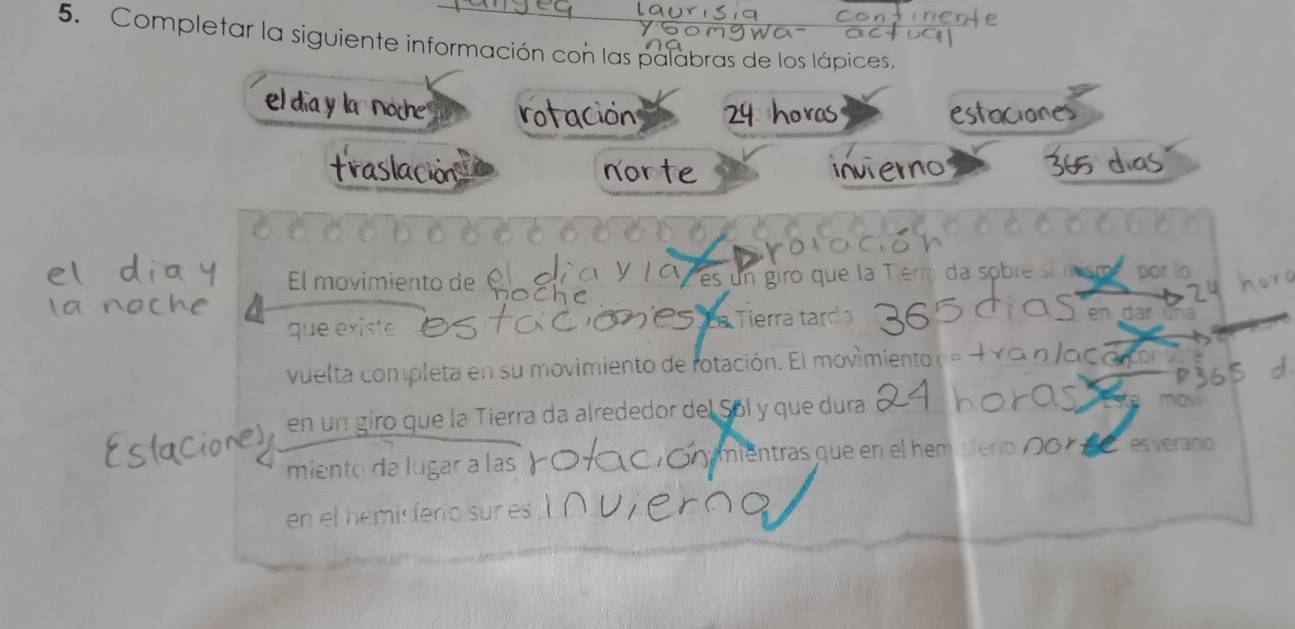 laurisia continente
ybomgwa- actual
na
5. Completar la siguiente información con las palabras de los lápices.
el dia y la noche rotación 24 horas estaciones
traslación norte invierno 365 dias
rotación
el dia y El movimiento de el dia y la es un giro que la Tierra da sobre sí misma por lo
la noche noche 24 hora
que existe estaciones La Tierra tarda 365 dias en dar una
vuelta completa en su movimiento de rotación. El movimiento de tranlacon consiste
365 d
en un giro que la Tierra da alrededor del Sol y que dura 24 horas Este movi-
Estaciones miento da lugar a las rotación, mientras que en el hemisferio norte es verano
en el hemisferio sur es invierno